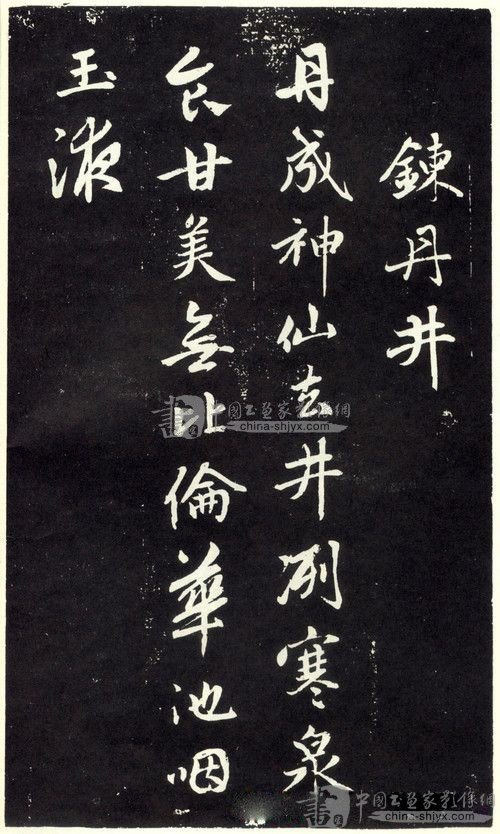 鍊丹井
丹成神仙去井列寒泉
食甘美無比倫華池咽
玉液
書 中国书画家影像網
china-shjyx.com
書 中国书画家影像網
china-shjyx.com